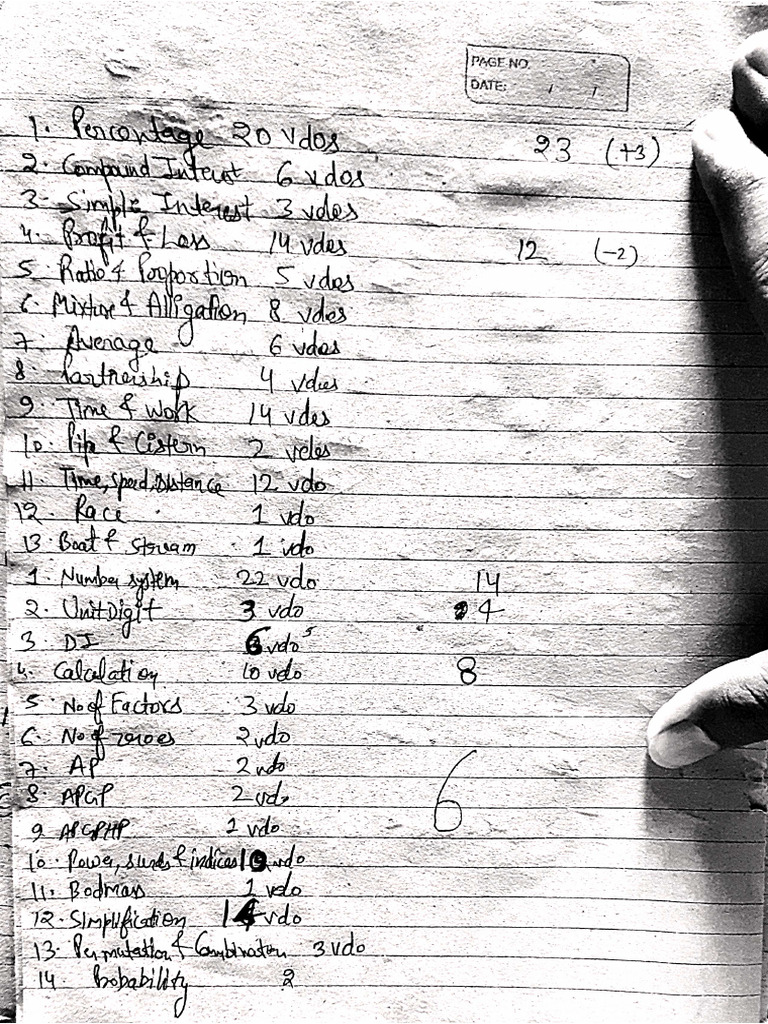 PAGE NO.
DATE: / /
1. Percentage 20 vdos 23 (+3)
2. Compound Interest 6 vdos
3. Simple Interest 3 vdos
4. Profit & Loss 14 vdos 12 (-2)
5. Ratio & Proportion 5 vdos
6. Mixture & Alligation 8 vdos
7. Average 6 vdos
8. Partnership 4 vdos
9. Time & Work 14 vdos
10. Pipe & Cistern 2 vdos
11. Time, speed, distance 12 vdo
12. Race 1 vdo
13. Boat & Stream 1 vdo
1. Number system 22 vdo 14
2. Unit Digit 3 vdo 4
3. DI 6 vdo 5
4. Calculation 10 vdo 8
5. No of Factors 3 vdo
6. No of zeroes 2 vdo
7. AP 2 vdo
8. APGP 2 vdo 6
9. APGPHP 1 vdo
10. Power, surds & indices 10 vdo
11. Bodmass 1 vdo
12. Simplification 14 vdo
13. Permutation & Combination 3 vdo
14. Probability 2